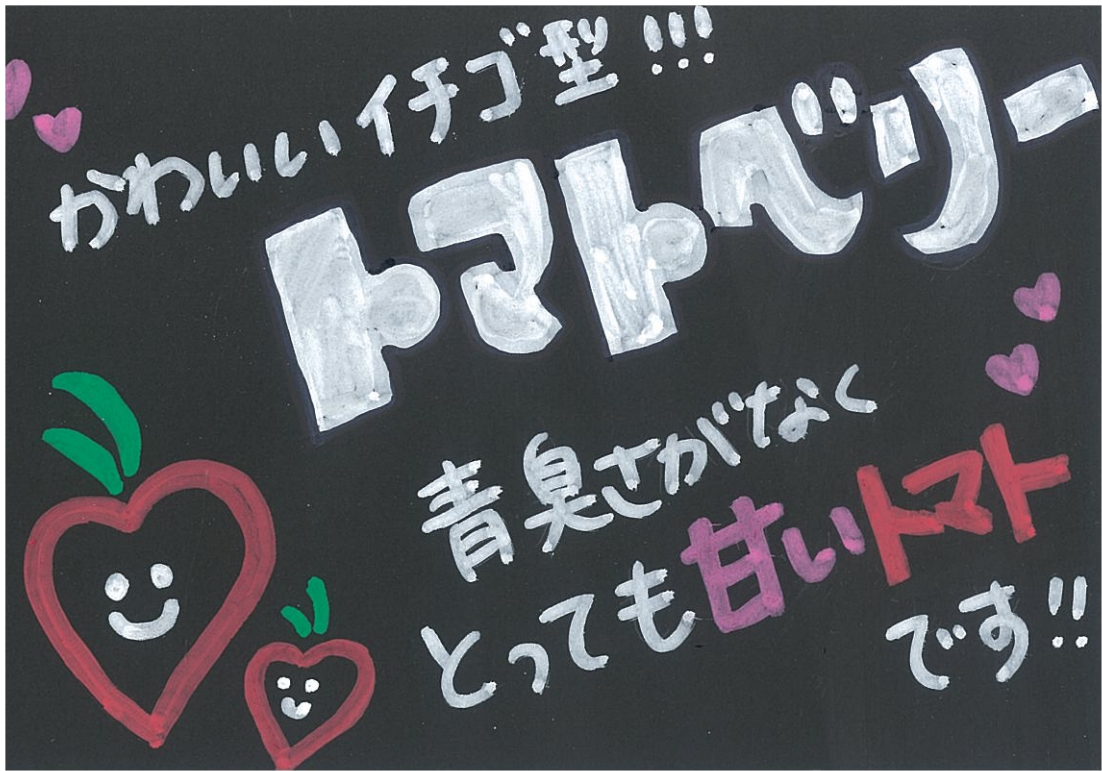 かわいいイチゴ型!!!
トマトベリー
青臭さがなく
とっても甘いトマト
です!!